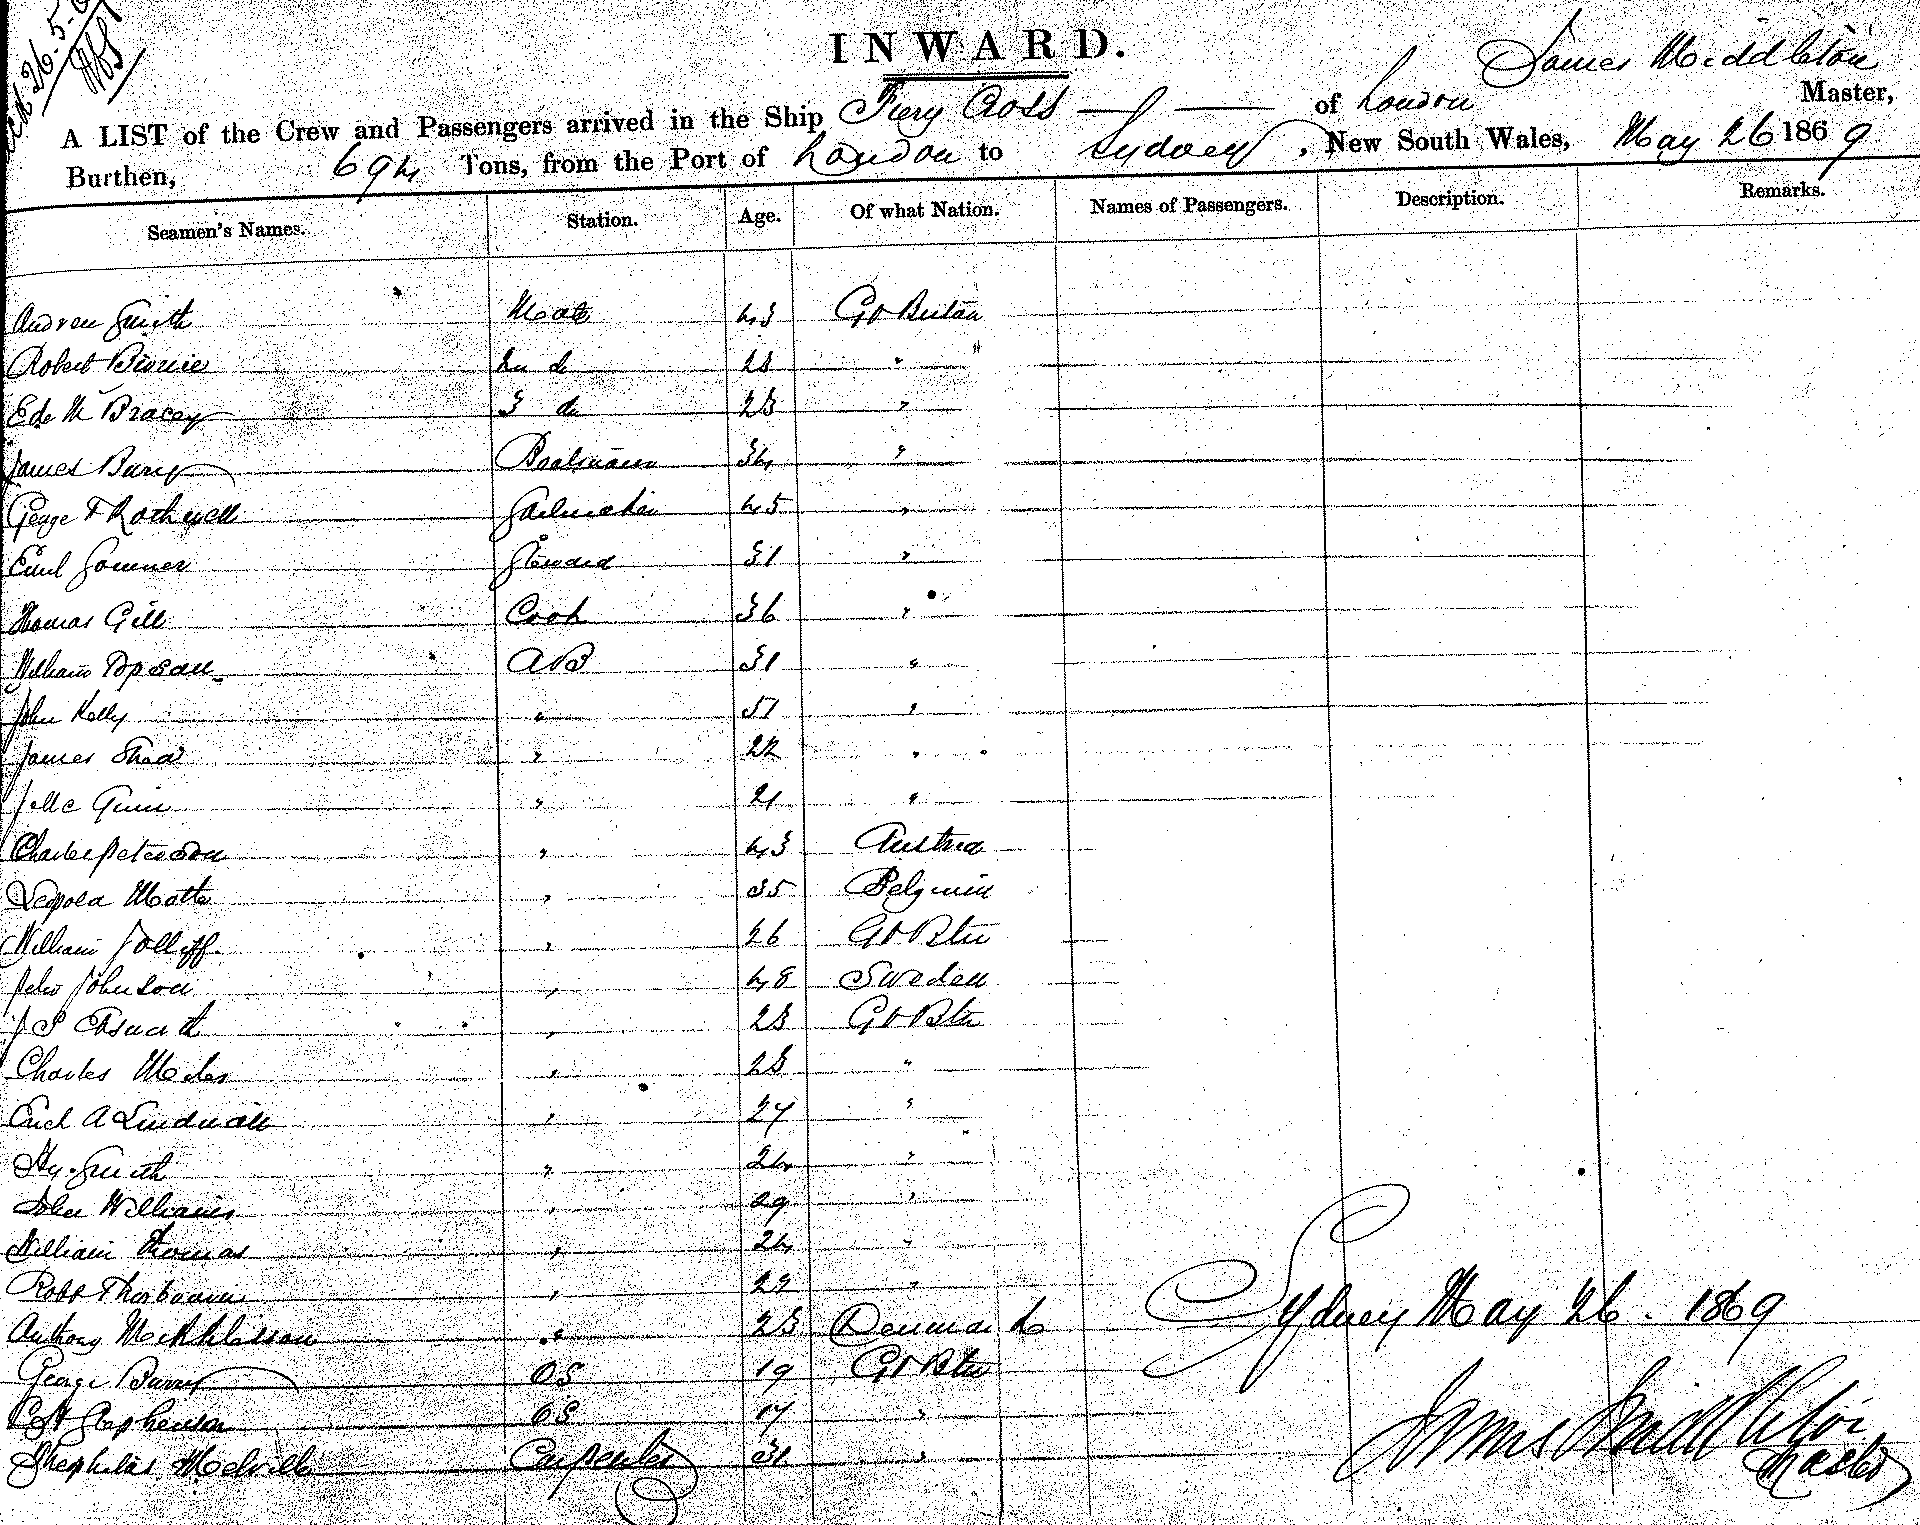 26.5.6
INWARD.
James Middleton
A LIST of the Crew and Passengers arrived in the Ship Fiery Cross of London Master,
Burthen, 694 Tons, from the Port of London to Sydney, New South Wales, May 26 1869
Seamen's Names. Station. Age. Of what Nation. Names of Passengers. Description. Remarks.
Andrew Smith Mate 43 Gt Britain
Robert Binnie 2n do 28 " "
Edw M Bracey 3 do 23 "
James Barry Boatswain 34 "
George F Rothwell Sailmaker 45 "
Emil Sommer Steward 31 "
Thomas Gill Cook 36 "
William Popsall AB 31 "
John Kelly " 51 "
James Shea " 22 "
J Mc Guin " 21 "
Charles Peterson " 43 Austria
Leopold Motte " 35 Belgium
William Jolliff " 26 Gt Btn
John Johnson " 48 Sweden
J S " 23 Gt Btn
Charles " 23 "
A Lindwall " 27 "
Hy. Smith " 24 "
John Williams " 29 "
William Thomas " 24 "
Robt Thorburn " 29 "
Anthony " 23 Denmark
George Barry OS 19 Gt Btn
Stephenson OS 17 "
Melville Carpenter 31 "
Sydney May 26. 1869
James Middleton
Master